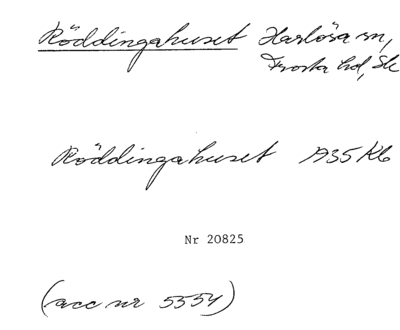 Röddingahuset Harlösa sn,
Frosta hd, Sk
Röddingahuset 1935 Kb
Nr 20825
(acc nr 5554)